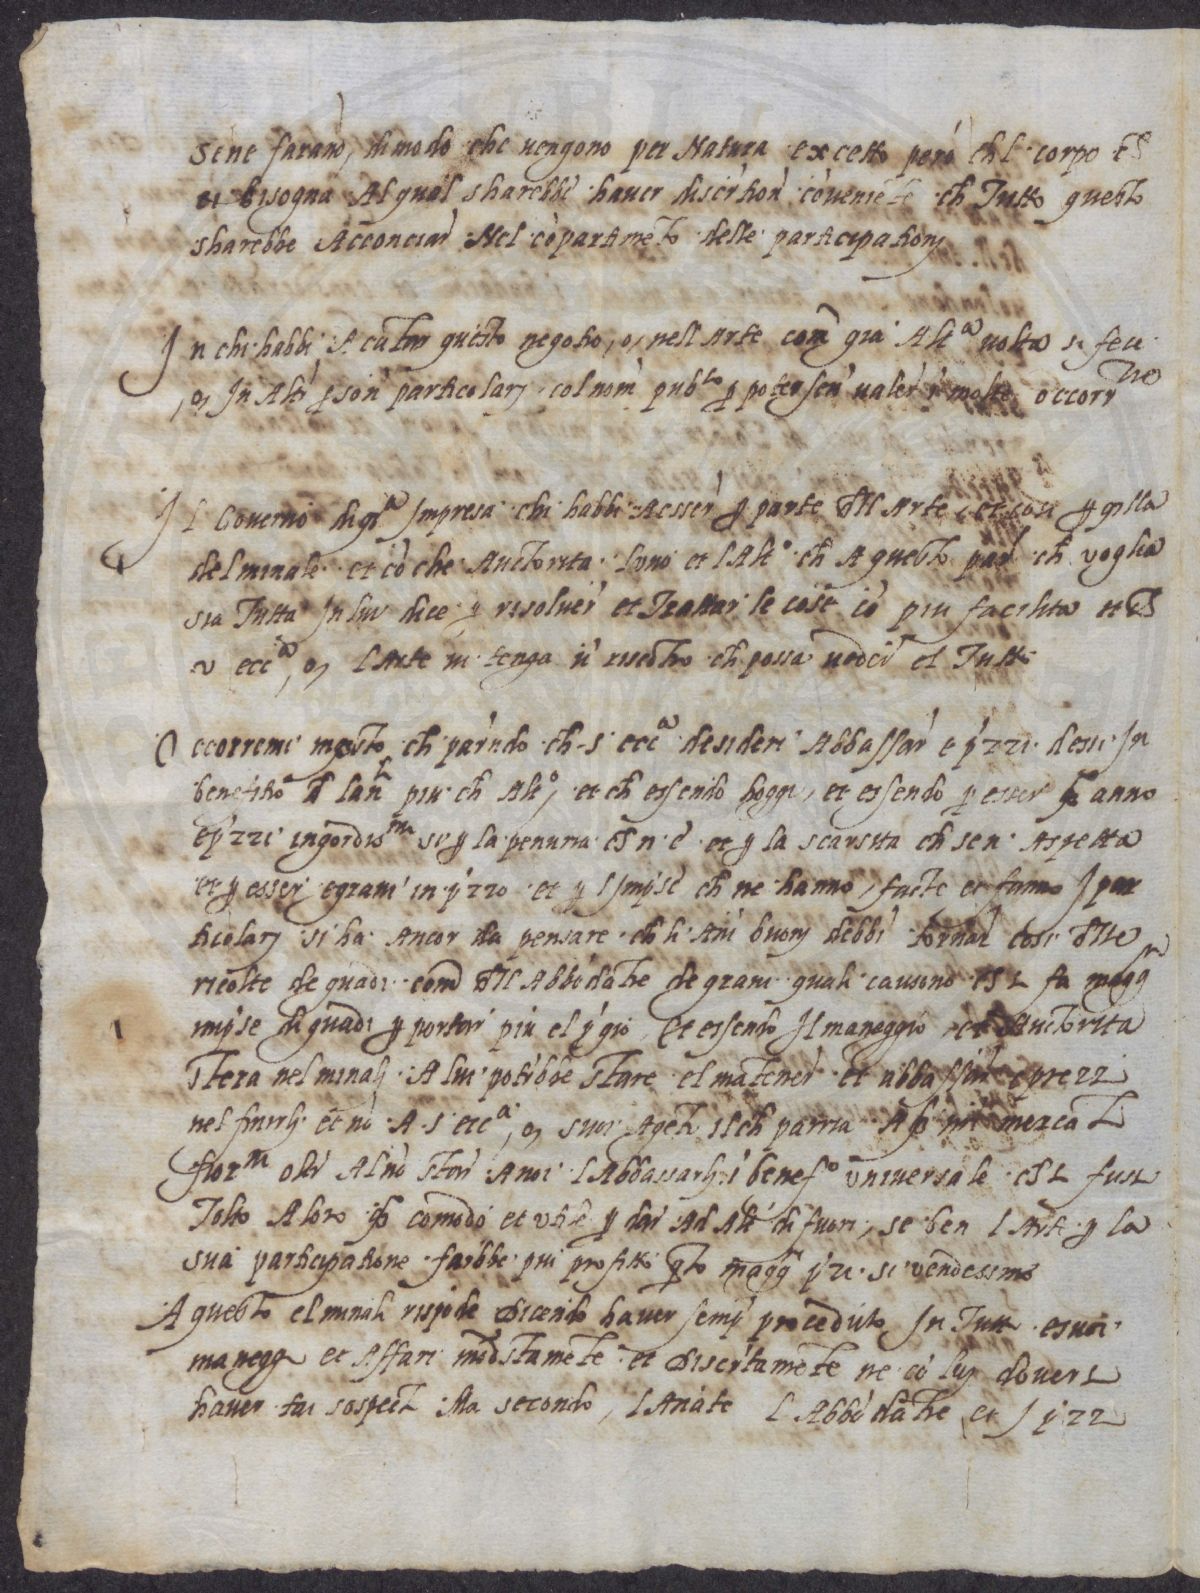 sene farano, dimodo che vengono per Natura excetto però ch l corpo
bisogna Al qual sharebbe haver discrtion coveniete ch Tutto questo
sharebbe Acconciar Nel copartimeto delle participationj
In chi habbi A cantar questo negotio, o, nell Arte com gia Alta volta si fece
, o, In Altr pson particolarj col nom pubco p potersen valer i molte occorrze
Il Governo di qta Impresa chi habbi Aesser p parte dll Arte et cosi p qlla
del minale et cò che Auctorita luno et lAlto ch A questo par ch voglia
sia Tutta In lui dice p risolver et Trattar le cose cò piu facilita et
v ecca, o, lArte vi tenga ū riscotro ch possa veder el Tutto
Occorremi in questo ch parndo ch s ecca desideri Abbassar e pzzi dessi In
benefitio d lan piu ch Alto, et ch essendo hoggi, et essendo p esser anno
e pzzi ingordismi si p la penuria n è et p la scarsita ch sen Aspetta
et p esser e grani in pzzo et p l Impse ch ne hanno, facte et fanno I par
ticolarj si ha Ancor da pensare ch li Ani buonj debbi tornar cosi dlle
ricolte de guadi com dll Abbodatie de grani quali causono fa magg
impse di guadi p portar piu el pgio, Et essendo Il maneggio et Auctorita
stera nel minalj A lui potrebbe stare el matener et abbassar e prezzi
nel et nò A s ecca, o, suoi Ageti il ch parria mercat
fiorni oltr Al nò star A noi l Abbassarli i benefo universale fusi
Tolto A loro comodo et utile p dar Ad Alt di fuori, se ben l Arte p la
sua participatione farebbe piu profitto qto magg pzi si vendessino
A questo el minale rispode dicendo haver semp proceduto In Tutti e suoi
manegg et Affari modstamete et discrtamete ne cò lui dover
haver tai sospect Ma secondo, l Anate l Abbodatie et I pzz